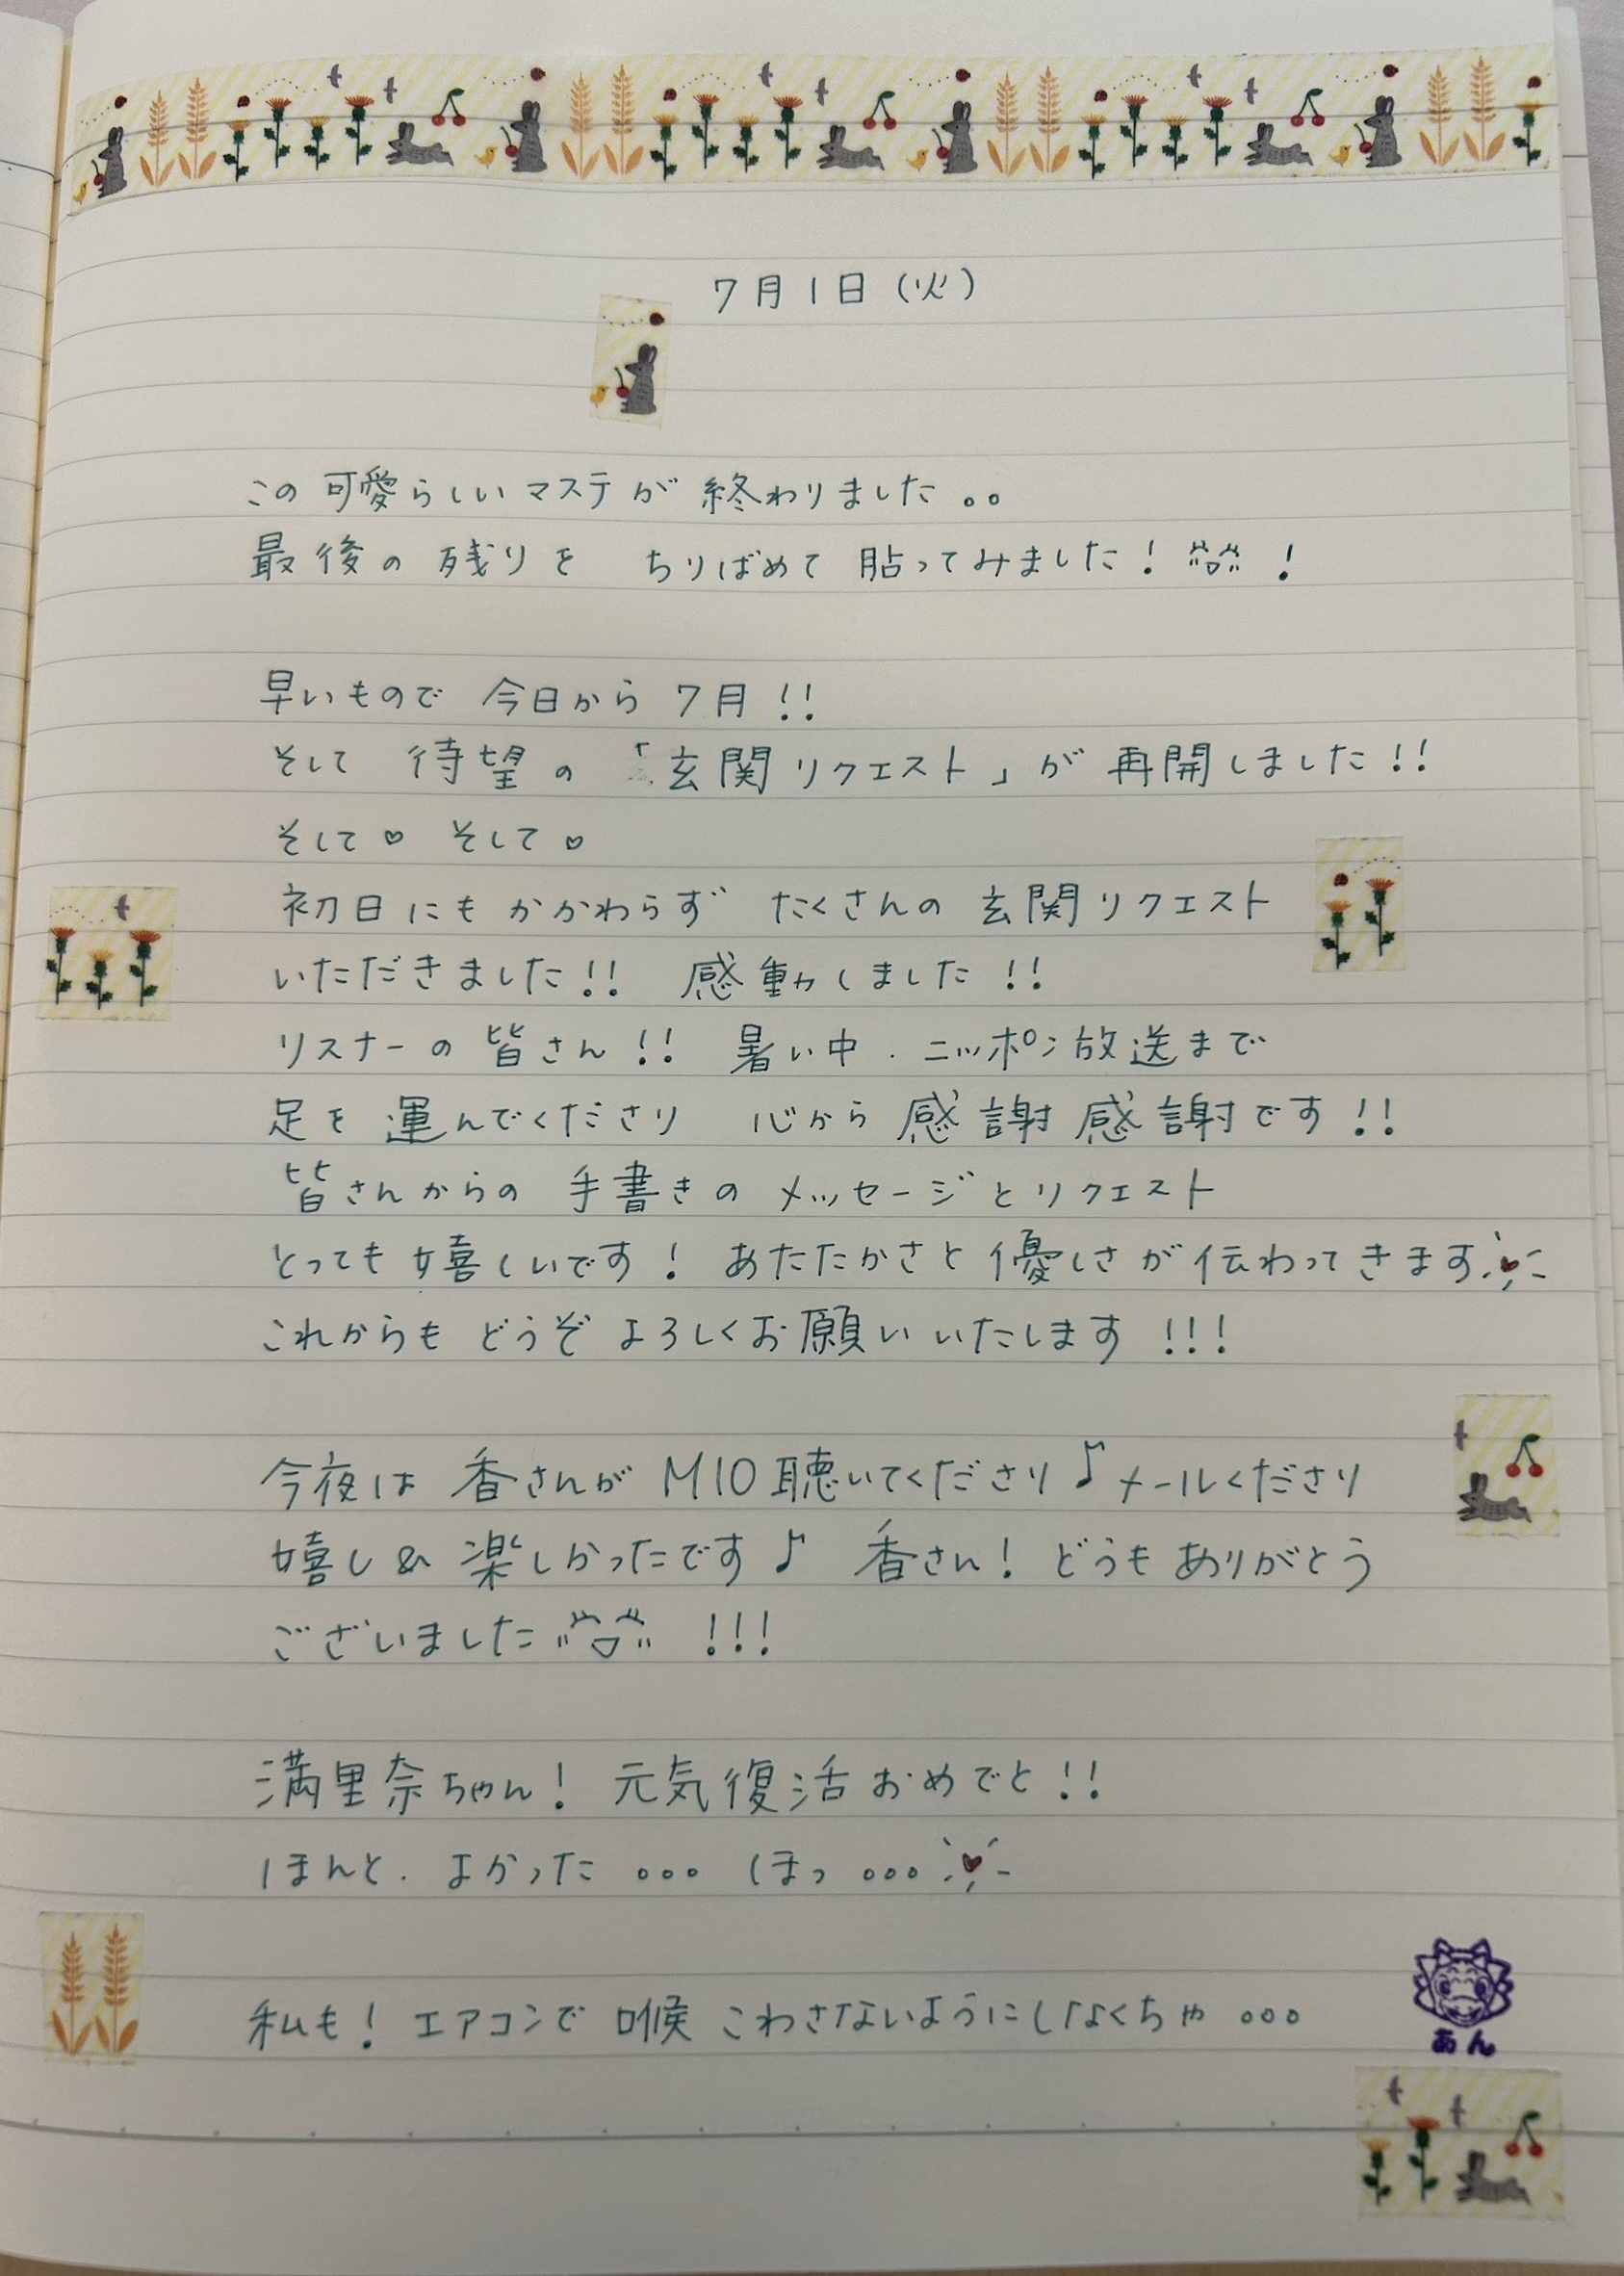 7月1日(火)
この可愛らしいマステが終わりました。。
最後の残りを ちりばめて 貼ってみました! !
早いもので 今日から 7月!!
そして 待望の「玄関リクエスト」が 再開しました!!
そして♡ そして♡
初日にもかかわらず たくさんの 玄関リクエスト
いただきました!! 感動しました!!
リスナーの 皆さん!! 暑い中.ニッポン放送まで
足を 運んでくださり 心から 感謝 感謝です!!
皆さんからの 手書きの メッセージとリクエスト
とっても 嬉しいです! あたたかさと 優しさが 伝わってきます♥
これからも どうぞ よろしくお願いいたします!!!
今夜は 香さんが M10 聴いてくださり♪メールくださり
嬉し& 楽しかったです♪ 香さん! どうも ありがとう
ございました !!!
満里奈ちゃん! 元気復活 おめでと!!
ほんと. よかった 。。。 ほっ 。。。♥
私も! エアコンで 喉 こわさないようにしなくちゃ 。。。
あん